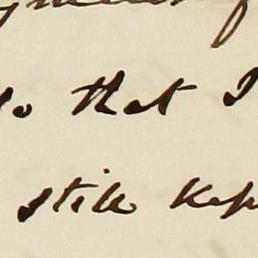 so that I
still kep